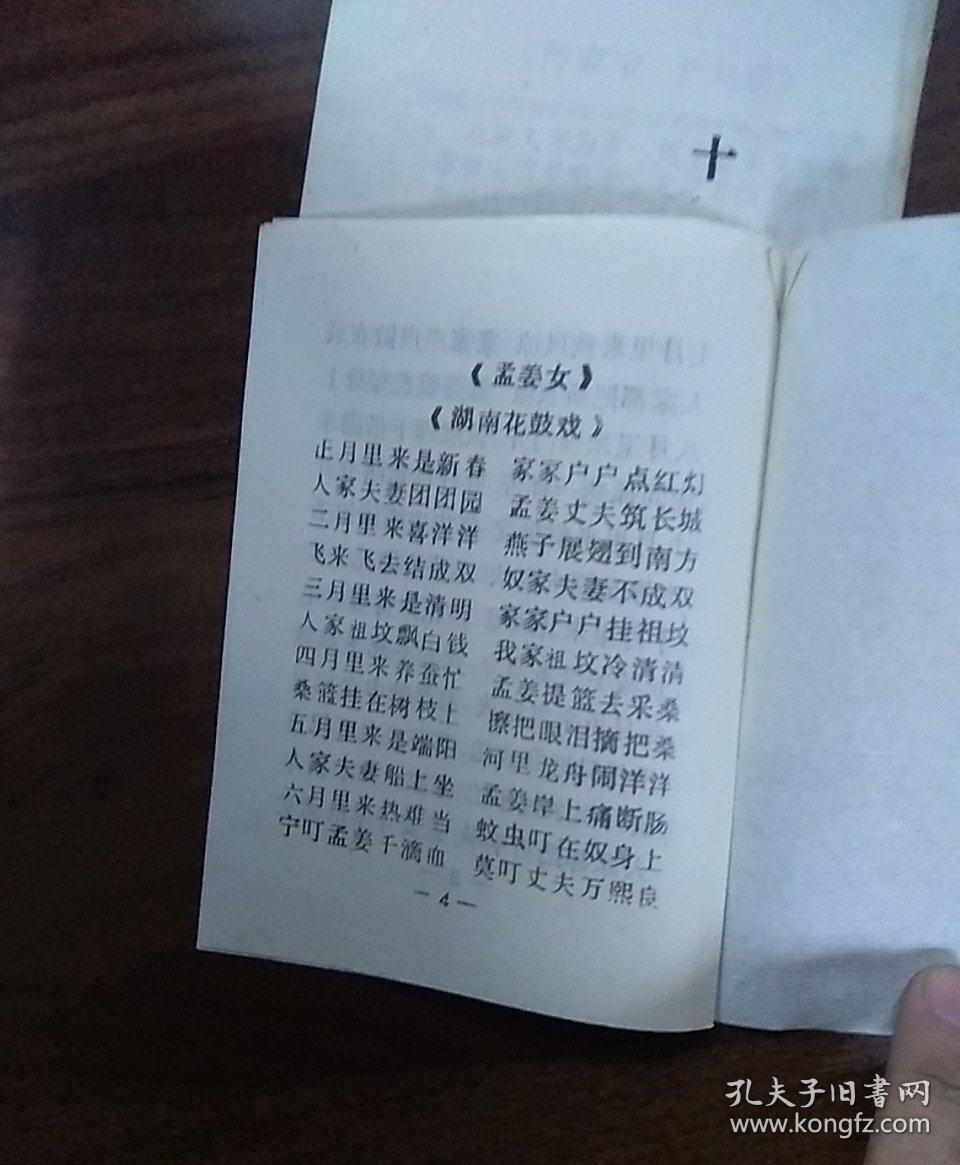 《孟姜女》
《湖南花鼓戏》
正月里来是新春 家家户户点红灯
人家夫妻团团园 孟姜丈夫筑长城
二月里来喜洋洋 燕子展翅到南方
飞来飞去结成双 奴家夫妻不成双
三月里来是清明 家家户户挂祖坟
人家祖坟飘白钱 我家祖坟冷清清
四月里来养蚕忙 孟姜提篮去采桑
桑篮挂在树枝上 擦把眼泪摘把桑
五月里来是端阳 河里龙舟闹洋洋
人家夫妻船上坐 孟姜岸上痛断肠
六月里来热难当 蚊虫叮在奴身上
宁叮孟姜千滴血 莫叮丈夫万熙良
—4—
孔夫子旧书网
www.kongfz.com